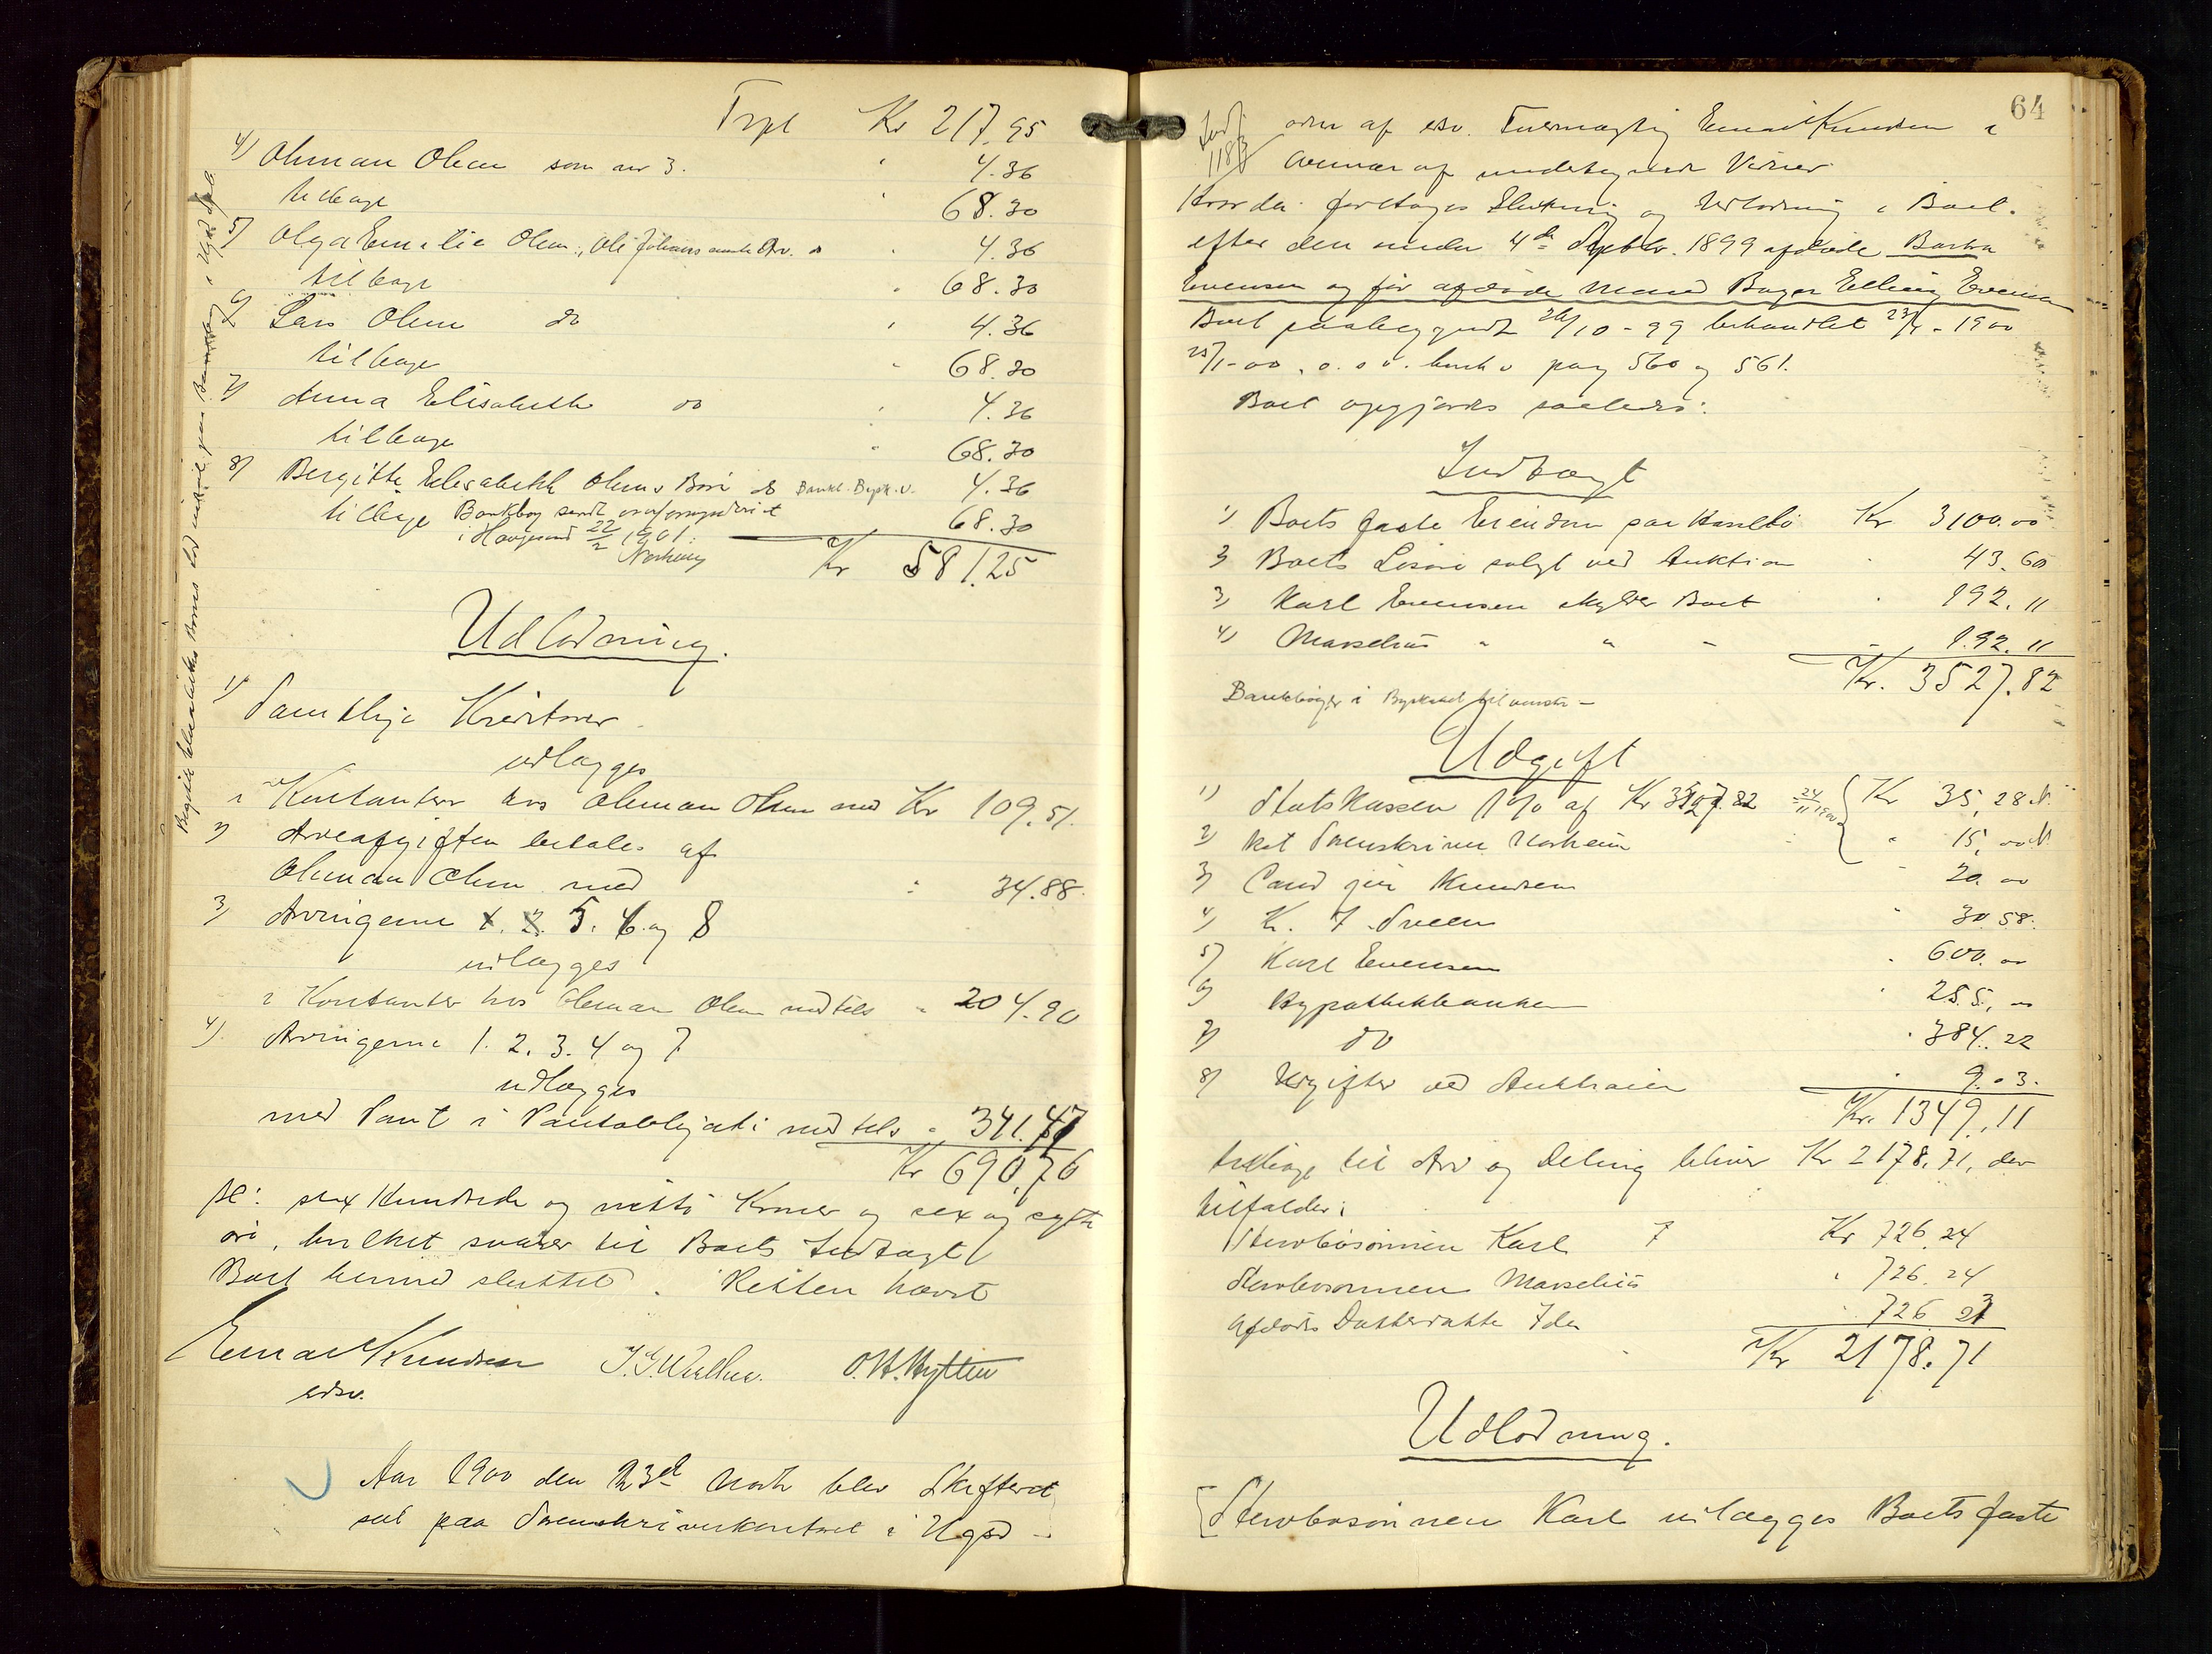 Trpt Kr 217.95
4) Oleman Olsen som nr 3. " 4.36
tilbage " 68.30
5) Olga Emilie Olsen, Ole Johans Arv. do " 4.36
tilbage " 68.30
6) Lars Olsen do " 4.36
tilbage " 68.30
7) Anna Elisabeth do " 4.36
tilbage " 68.30
8) Bergitte Elisabeth Olsens Börn do Bankb. Bysk. v. 4.36
tilbage Bankbog sendt overformynderiet 68.30
i Haugesund 22/2 1901.
Norheim
Kr 581.25
Udlodning.
1) Samtlige Kreditorer
udlægges
i Kontanter hos Oleman Olsen med Kr 109.51.
2) Arveafgiften betales af
Oleman Olsen med " 34.88.
3) Arvingerne 1. 2. 5. 6 og 8
udlægges
i Kontanter hos Oleman Olsen med tils " 204.90
4) Arvingerne 1. 2. 3. 4 og 7
udlægges
med Pant i Pantobligati med tels " 341.47
Kr 690,76
sex Hundrede og nitti Kroner og sex og sytti
öre, hvilket svarer til Boets Indtægt
Boet hermed sluttet. Retten hævet
Einar Knudsen
edsv.
O. H. Hytten
Aar 1900 den 23de Novb blev Skifteret
sat paa Sorenskriverkontoret i Ugsd
64
Indf
1183
orden af edsv. Fuldmægtig Einar Knudsen i
Overvær af undertegnede Vidner
Hvorda foretoges Slutning og Udlodning i Boet
efter den under 4de Septbr. 1899 afdøde Barbra
Evensen og før afdøde Mand Bager Elling Evensen
Boet paabegyndt 26/10 - 99 behandlet 23/1 - 1900
25/1-00, o. s. v. pag 560 og 561.
Boet opgjordes saaledes:
Indtægt
1) Boets faste Eiendom paa Kr 3100.00
2) Boets Lösöre solgt ved Auktion " 43.60
3) Karl Evensen skylder Boet " 192.11
4) Marselius " " " " 192.11
Kr. 3527.82
Bankböger i Byskabet til venstre -
Udgift
1) Statskassen 1% af Kr 3527.82 24/11 1900 Kr 35,28
2) kst Sorenskriver Norheim " 15,00
3) Cand jur Knudsen " 20.00
4) K. J. Sveen " 30.58.
5) Karl Evensen " 600.00
6) Hypothekbanken " 255,00
7) do " 384.22
8) Udgifter ved Auktionen " 9.03.
Kr. 1349.11
tilbage til Arv og Deling bliver Kr 2178.71, der
tilfalder:
Stervbosönnen Karl Kr 726.24
Stervbosönnen Marselius " 726.24
afdöds Datterdatter Ida " 726 23
Kr 2178.71
Udlodning.
Stervbosönnen Karl udlægges Boets faste